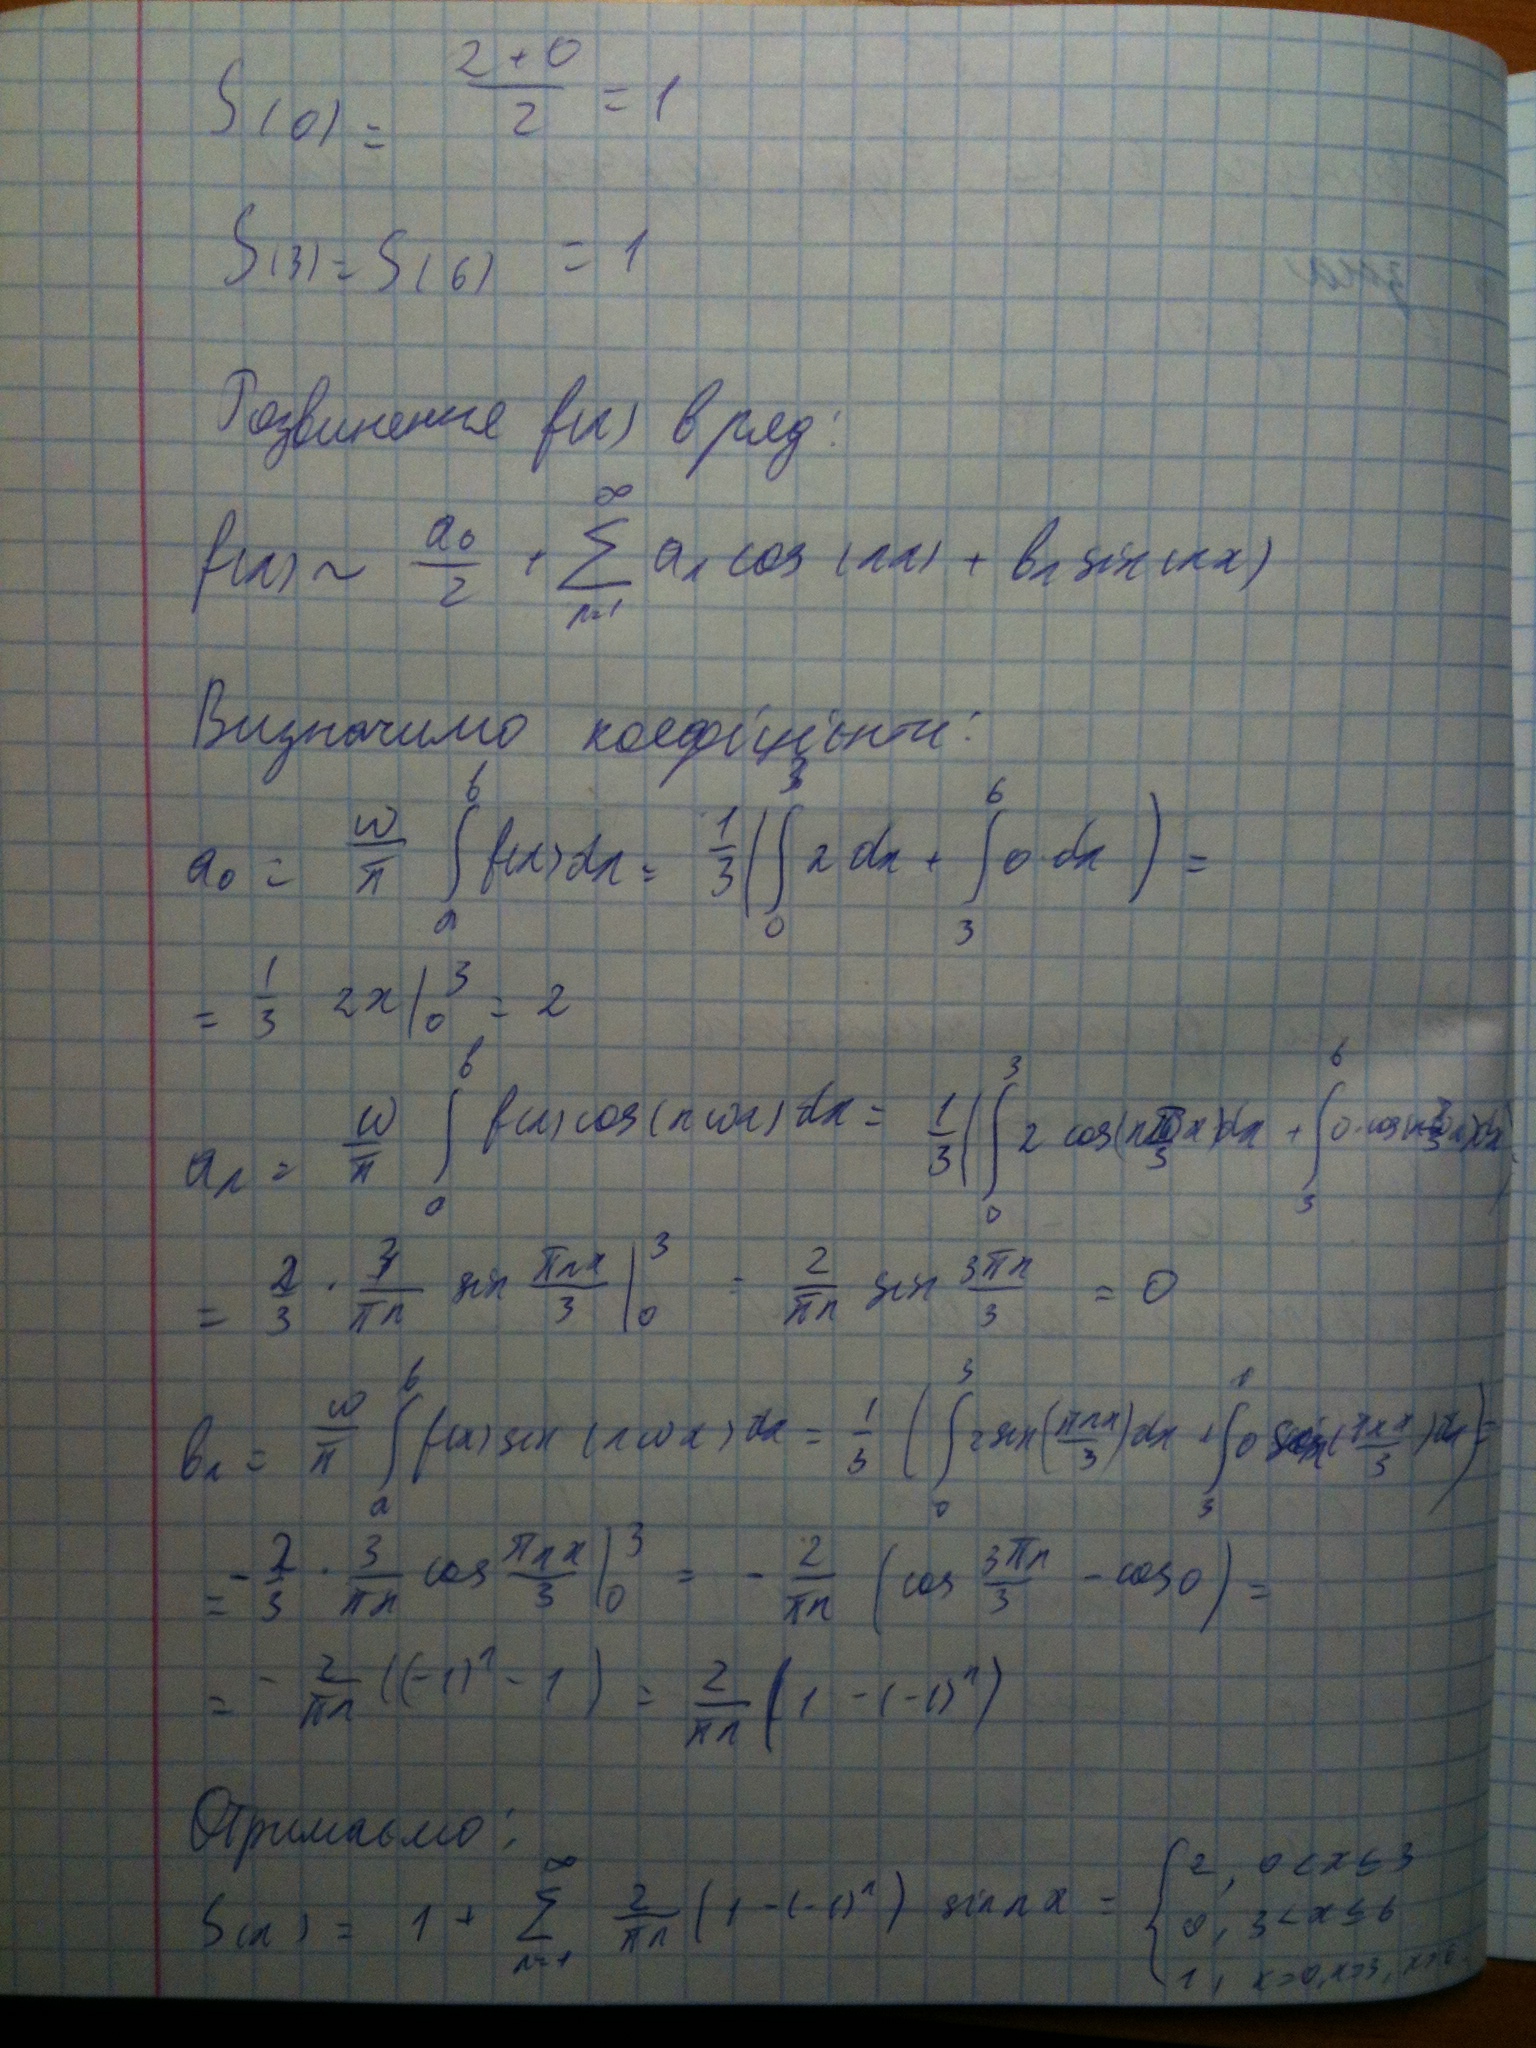 S(0) = (2+0)/2 = 1
S(3) = S(6) = 1
Розвинення f(x) в ряд:
f(x) ~ a₀/2 + ∑_{n=1}^{∞} aₙ cos(nx) + bₙ sin(nx)
Визначимо коефіцієнти:
a₀ = ω/π ∫_a^b f(x)dx = 1/3 (∫_0^3 2dx + ∫_3^6 0·dx) =
= 1/3 2x |_0^3 = 2
aₙ = ω/π ∫_0^b f(x)cos(nωx)dx = 1/3 (∫_0^3 2 cos(n π/3 x)dx + ∫_3^6 0·cos(n π/3 x)dx)
= 2/3 · 3/πn sin πnx/3 |_0^3 = 2/πn sin 3πn/3 = 0
bₙ = ω/π ∫_a^b f(x) sin(nωx)dx = 1/3 (∫_0^3 2sin(πnx/3)dx + ∫_3 0 sin(πnx/3)dx) =
= -2/3 · 3/πn cos πnx/3 |_0^3 = -2/πn (cos 3πn/3 - cos0) =
= -2/πn ((-1)ⁿ - 1) = 2/πn (1 - (-1)ⁿ)
Отримаємо:
S(x) = 1 + ∑_{n=1}^{∞} 2/πn (1 - (-1)ⁿ) sin nx = { 2, 0<x≤3
0, 3<x≤6
1, x=0, x=3, x=6